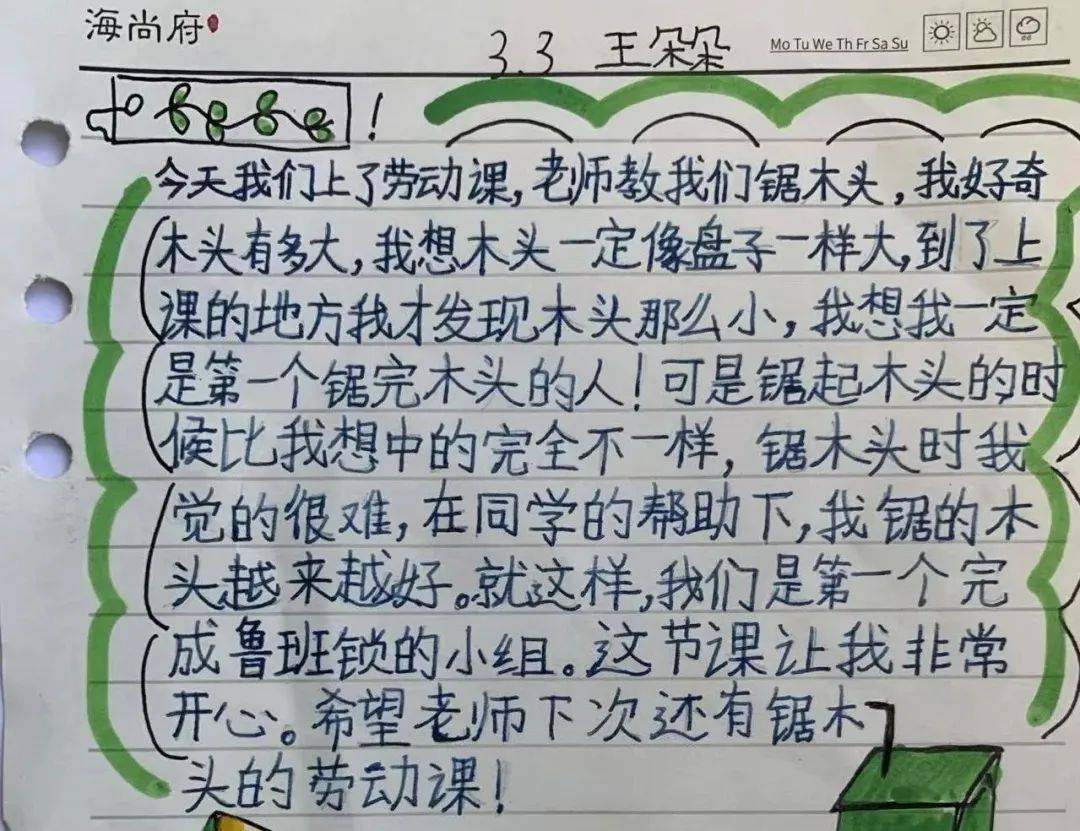 海尚府
3.3 王朵朵
Mo Tu We Th Fr Sa Su
!
今天我们上了劳动课,老师教我们锯木头,我好奇
木头有多大,我想木头一定像盘子一样大,到了上
课的地方我才发现木头那么小,我想我一定
是第一个锯完木头的人!可是锯起木头的时
候比我想中的完全不一样,锯木头时我
觉的很难,在同学的帮助下,我锯的木
头越来越好。就这样,我们是第一个完
成鲁班锁的小组。这节课让我非常
开心。希望老师下次还有锯木
头的劳动课!